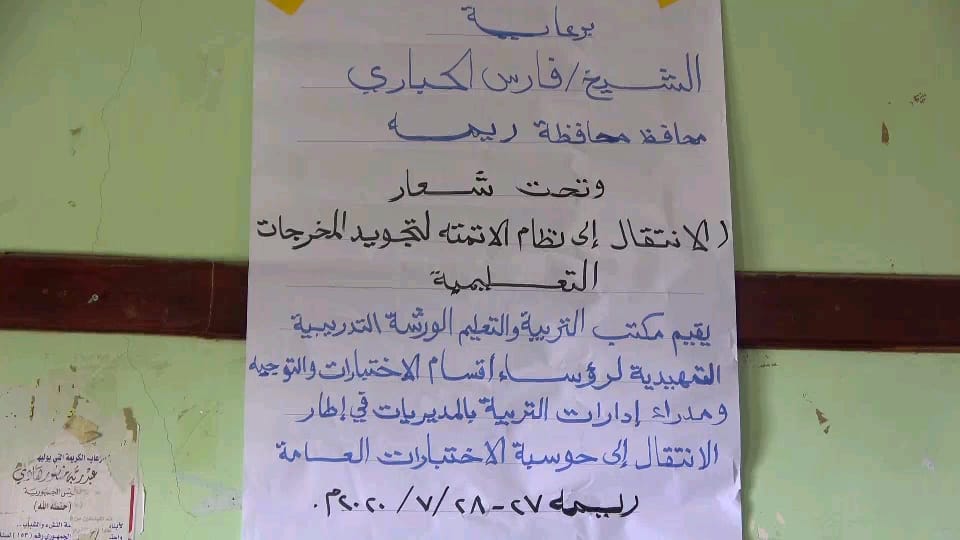 برعاية
الشيخ/فارس الحباري
محافظ محافظة ريمه
وتحت شعار
(الانتقال إلى نظام الاتمته لتجويد المخرجات
التعليمية
يقيم مكتب التربية والتعليم الورشة التدريبية
التمهيدية لرؤساء أقسام الاختبارات والتوجيه
ومدراء إدارات التربية بالمديريات في إطار
الانتقال إلى حوسبة الاختبارات العامة
ريمه ٢٧-٢٨/٧/٢٠٢٠م.
الكريمة التي يوليها
عبدربه منصور هادي
الجمهورية
(حفظه الله)
لأبناء
ة النشء والشباب..
الجمهوري رقم (١٥٣) لسنة